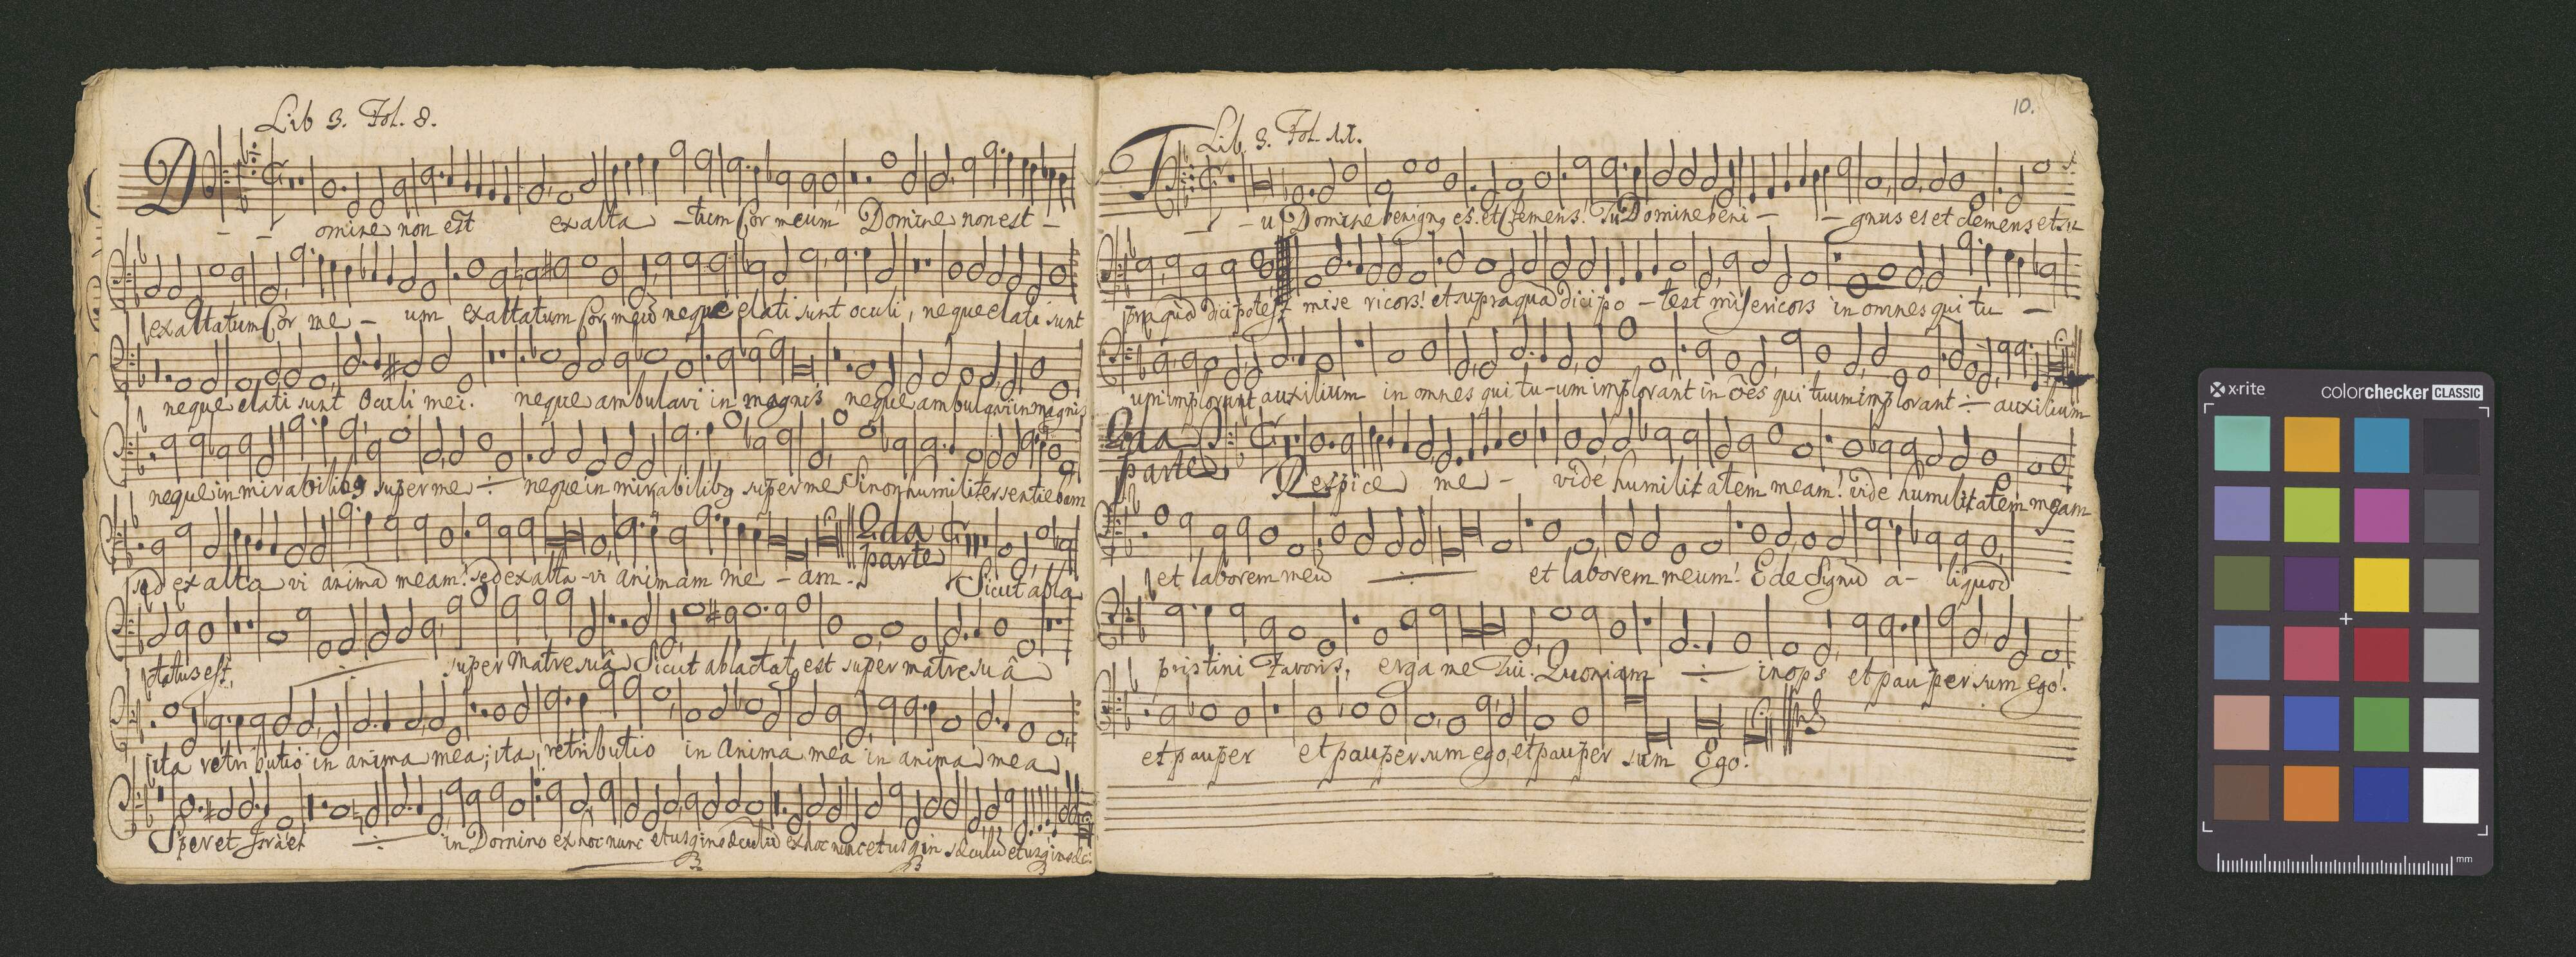 Lib 3. Fol. 8.
Domine non est exalta - tum Cor meum Domine non est -
exaltatum Cor me - um exaltatum Cor meū neque elati sunt oculi, neque elati sunt
neque elati sunt Oculi mei. neque ambulavi in magnis neque ambulavi in magnis
neque in mirabilibꝰ super me ÷ neque in mirabilibꝰ super me Si non humiliter sentiebam
sed exalta vi animā meam! sed exalta - vi animam me - am.
2da parte
Sicut abla
ctatus est, ÷ super Matre suâ Sicut ablactatꝰ est super matre su â
ita retri butio in anima mea; ita, retributio in Anima mea in anima mea
Speret Israel ÷ in Domino ex hoc nunc et usq; in sæculū ex hoc nunc et usq; in sæculū et usq; in sæc:
10.
Lib. 3. Fol. 11.
Tu Domine benignꝰ es. et Clemens! Tu Domine beni - - gnus es et clemens et su
pra quā dici potest mise ricors! et supra quā dici po - test misericors in omnes qui tu -
um implorant auxilium in omnes qui tu - um implorant in ōēs qui tuum implorant ÷ auxilium
2da parte
Respice me - vide humilitatem meam! vide humilitatem meam
et laborem meū ÷ et laborem meum! Ede Signū a - liquod
pristini Favoris, erga me Tui. Quoniam ÷ inops et pauper sum ego!
et pauper et pauper sum ego, et pauper sum Ego!
x-rite
colorchecker CLASSIC
mm